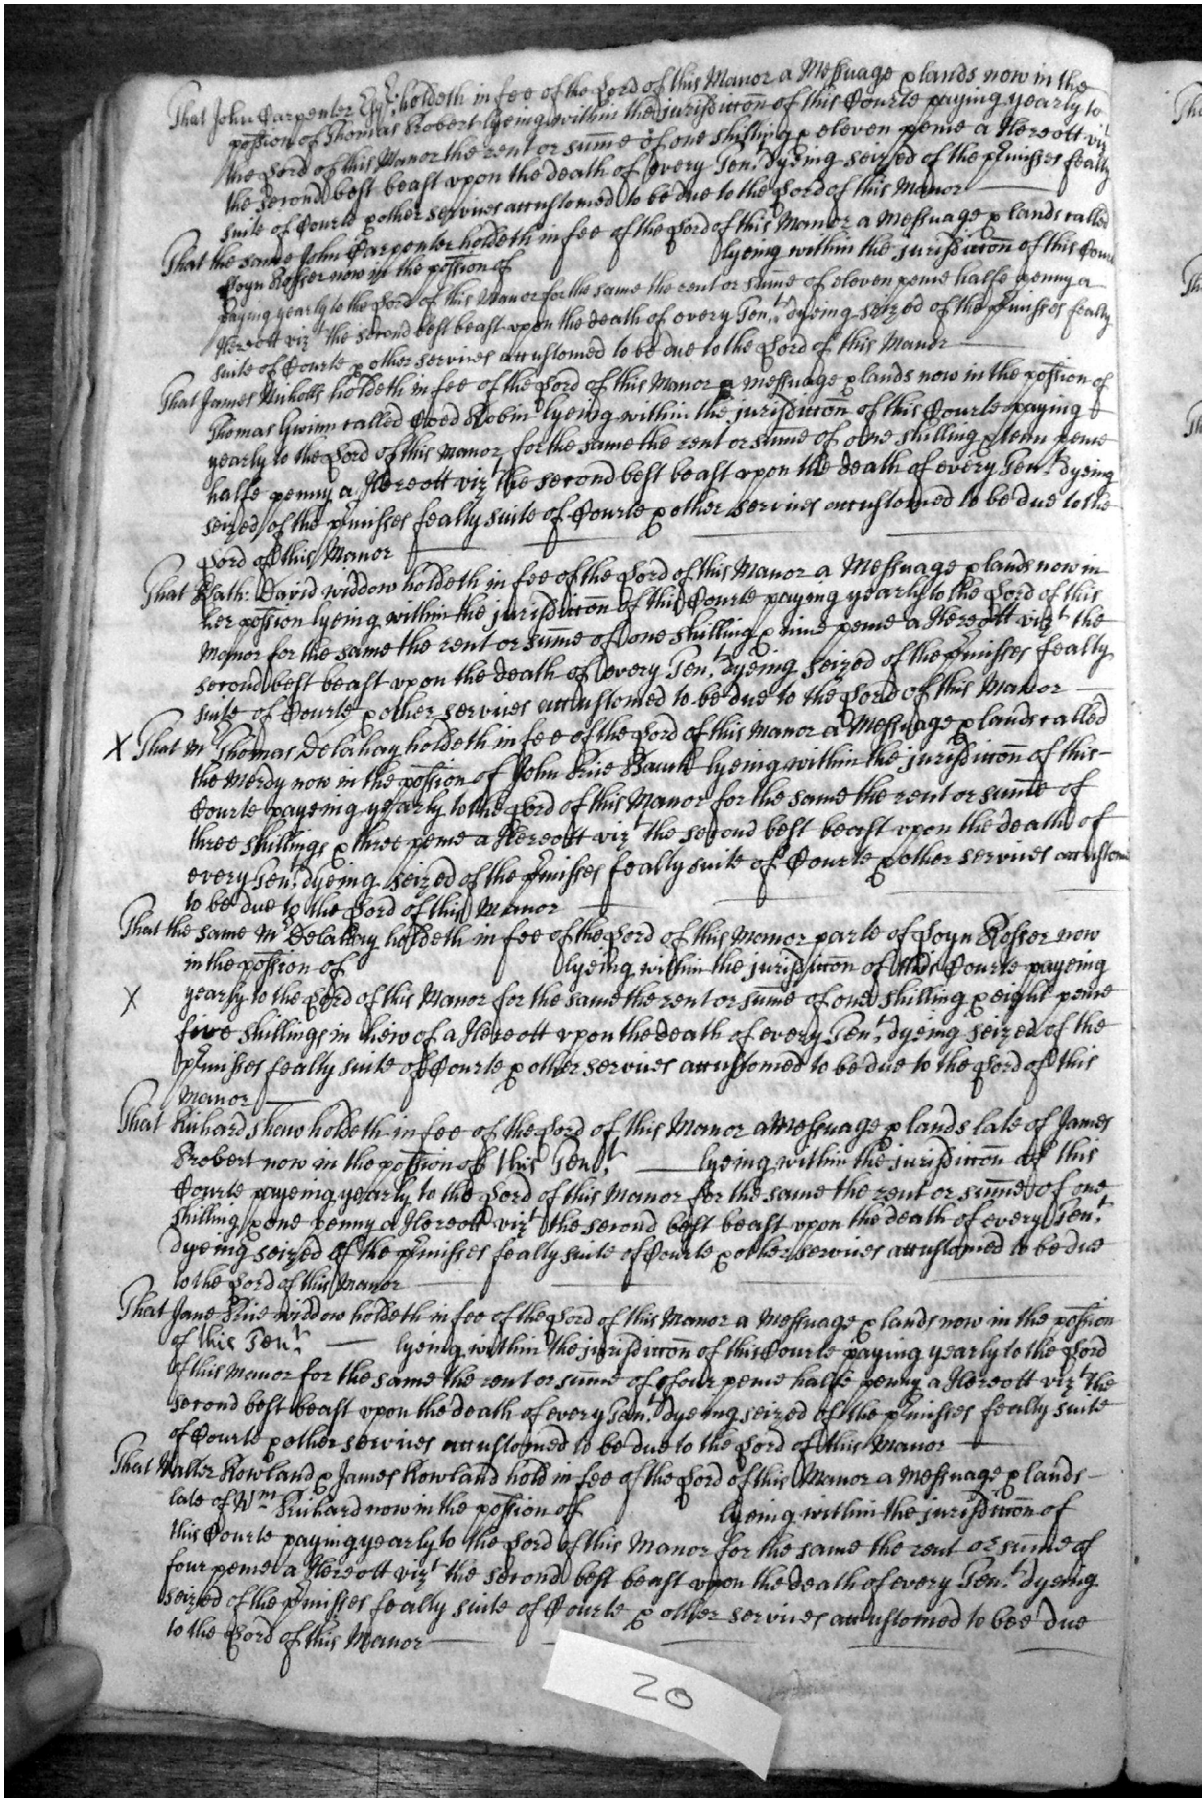 That John Carpenter Esqr: holdeth in fee of the Lord of this Manor a Messuage & lands now in the
possion of Thomas Probert lyeing within the jurisdiccōn of this Courte paying yearly to
the Lord of this Manor the rent or sum̄e of one shilling & eleven pence a Hereott vizt
the second best beast vpon the death of every Tent. dyeing seized of the p'misses fealty
suite of Courte & other services accustomed to be due to the Lord of this Manor
That the same John Carpenter holdeth in fee of the Lord of this Manor a Messuage & lands called
Loyn Rosser now in the possion of lyeing within the jurisdiccōn of this Courte
Paying yearly to the Lord of this Manor for the same the rent or sum̄e of eleven pence halfe penny a
Hereott vizt the second best beast vpon the death of every Tent. dyeing seized of the p'misses fealty
suite of Courte & other services accustomed to be due to the Lord of this Manor
That James Nicholls holdeth in fee of the Lord of this Manor a Messuage & lands now in the possion of
Thomas Gwinn called Coed Robin lyeing within the jurisdiccōn of this Courte paying
yearly to the Lord of this Manor for the same the rent or sum̄e of one shilling & tenn pence
halfe penny a Hereott vizt the second best beast vpon the death of every Tent. dyeing
seized of the p'misses fealty suite of Courte & other services accustomed to be due to the
Lord of this Manor
That Kath: David widdow holdeth in fee of the Lord of this Manor a Messuage & lands now in
her possion lyeing within the jurisdiccōn of this Courte paying yearly to the Lord of this
Manor for the same the rent or sum̄e of one shilling & nine pence a Hereott vizt the
second best beast vpon the death of every Tent. dyeing seized of the p'misses fealty
suite of Courte & other services accustomed to be due to the Lord of this Manor
X That Mr Thomas Delahay holdeth in fee of the Lord of this Manor a Messuage & lands called
the Merdy now in the possion of John Price lyeing within the jurisdiccōn of this
Courte payeing yearly to the Lord of this Manor for the same the rent or sum̄e of
three shillings & three pence a Hereott vizt the second best beast vpon the death of
every Tent. dyeing seized of the p'misses fealty suite of Courte & other services accustomed
to be due to the Lord of this Manor
That the same Mr Delahay holdeth in fee of the Lord of this Manor parte of Loyn Rosser now
in the possion of lyeing within the jurisdiccōn of this Courte payeing
X yearly to the Lord of this Manor for the same the rent or sum̄e of one shilling & eight pence
five shillings in liew of a Hereott vpon the death of every Tent. dyeing seized of the
p'misses fealty suite of Courte & other services accustomed to be due to the Lord of this
Manor
That Richard Shaw holdeth in fee of the Lord of this Manor a Messuage & lands late of James
Probert now in the possion of this Tent. lyeing within the jurisdiccōn of this
Courte payeing yearly to the Lord of this Manor for the same the rent or sum̄e of one
shilling & one penny a Hereott vizt the second best beast vpon the death of every Tent.
dyeing seized of the p'misses fealty suite of Courte & other services accustomed to be due
to the Lord of this Manor
That Jane Price widdow holdeth in fee of the Lord of this Manor a Messuage & lands now in the possion
of this Tent. lyeing within the jurisdiccōn of this Courte paying yearly to the Lord
of this Manor for the same the rent or sum̄e of four pence halfe penny a Hereott vizt the
second best beast vpon the death of every Tent. dyeing seized of the p'misses fealty suite
of Courte & other services accustomed to be due to the Lord of this Manor
That Walter Rowland & James Rowland hold in fee of the Lord of this Manor a Messuage & lands
late of Wm Prichard now in the possion of lyeing within the jurisdiccōn of
this Courte paying yearly to the Lord of this Manor for the same the rent or sum̄e of
four pence a Hereott vizt the second best beast vpon the death of every Tent. dyeing
seized of the p'misses fealty suite of Courte & other services accustomed to bee due
to the Lord of this Manor
20